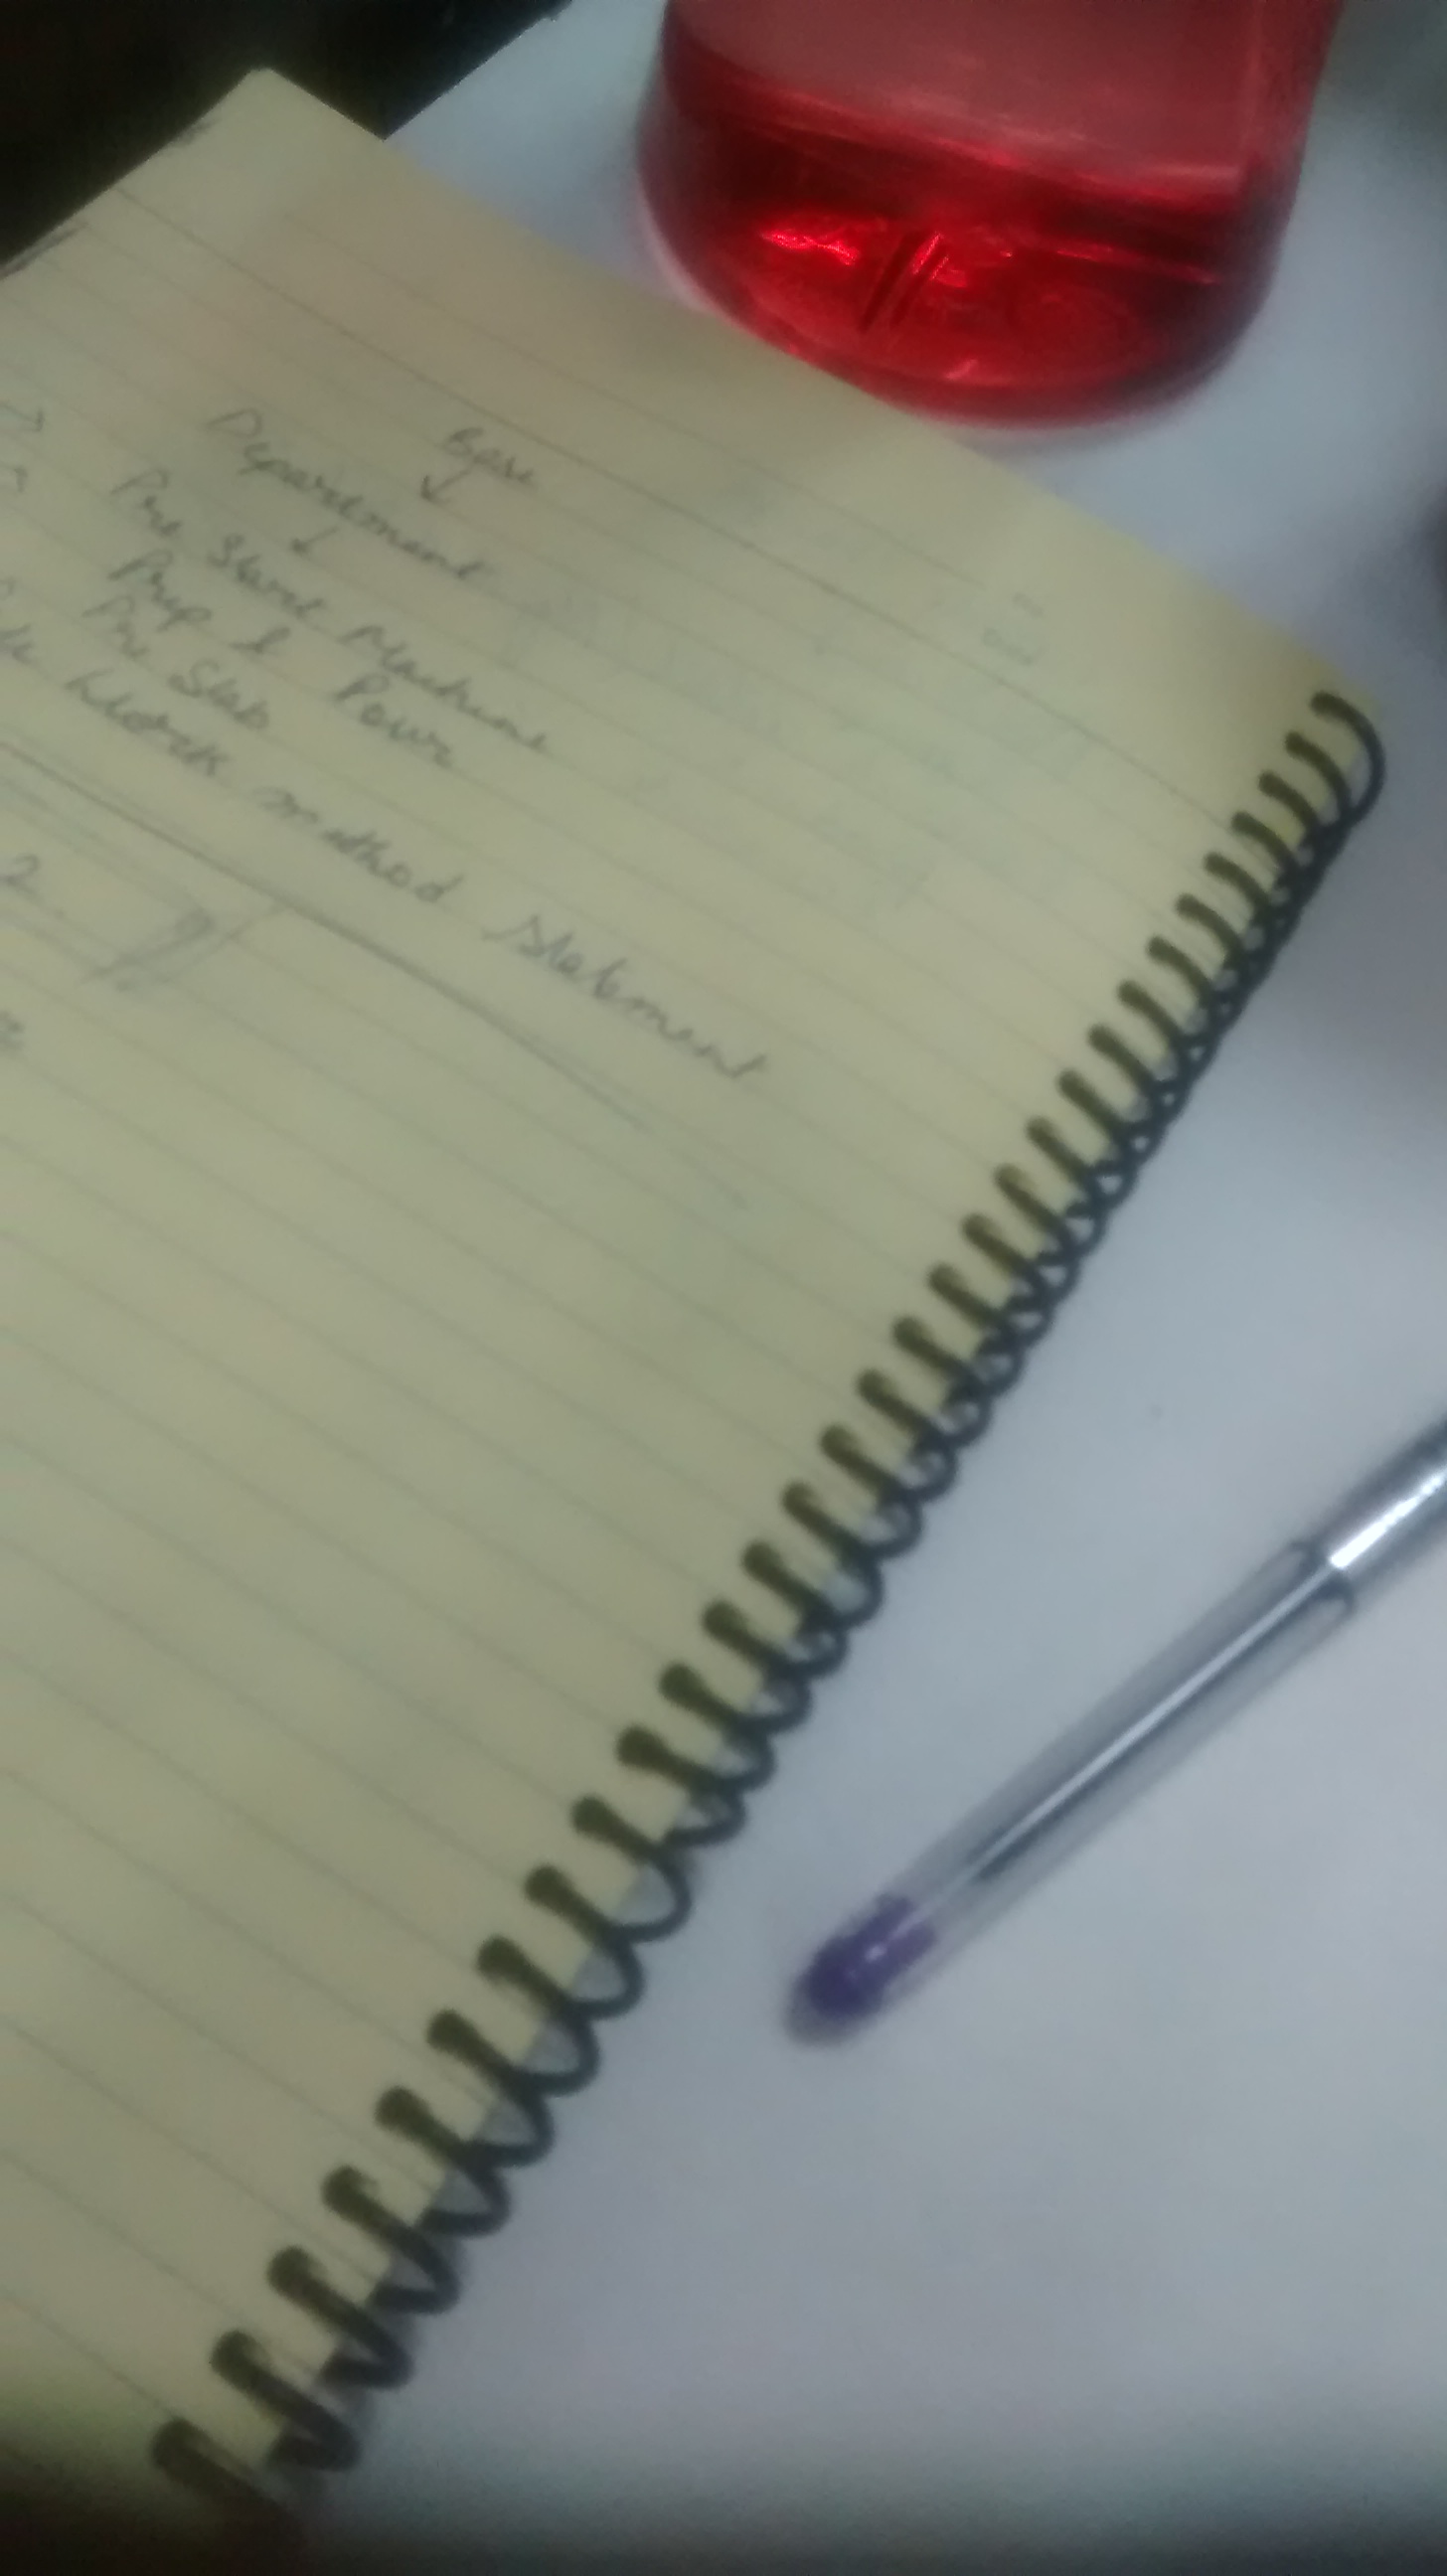 Base
Department
Pre Start Machine
Prep & Pour
Pre Slab
Work method statement
2